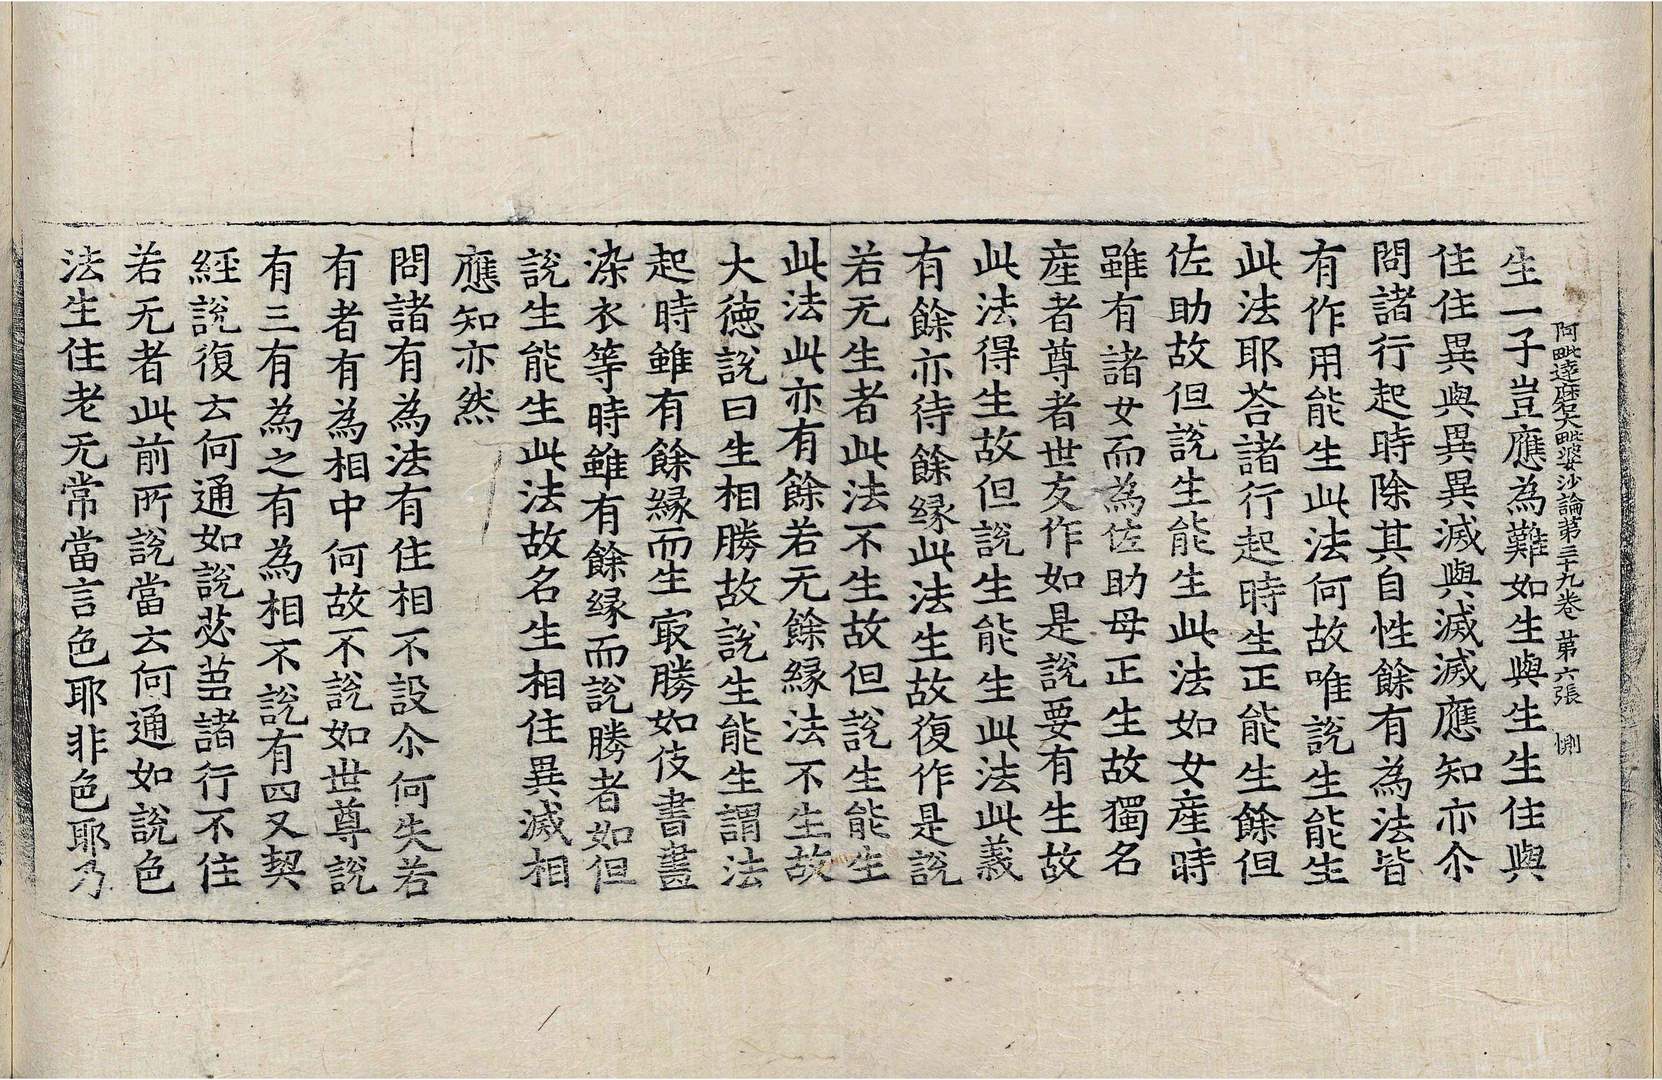 阿毗達磨大毗婆沙論第三十九卷 第六張 惻
生一子豈應為難如生與生生住與
住住異與異異滅與滅滅應知亦尒
問諸行起時除其自性餘有為法皆
有作用能生此法何故唯說生能生
此法耶荅諸行起時生正能生餘但
佐助故但說生能生此法如女產時
雖有諸女而為佐助母正生故獨名
產者尊者世友作如是說要有生故
此法得生故但說生能生此法此義
有餘亦待餘緣此法生故復作是說
若无生者此法不生故但說生能生
此法此亦有餘若无餘緣法不生故
大德說曰生相勝故說生能生謂法
起時雖有餘緣而生㝡勝如伎書畫
染衣等時雖有餘緣而說勝者如但
說生能生此法故名生相住異滅相
應知亦然
問諸有為法有住相不設尒何失若
有者有為相中何故不說如世尊說
有三有為之有為相不說有四又契
經說復云何通如說苾芻諸行不住
若无者此前所說當云何通如說色
法生住老无常當言色耶非色耶乃